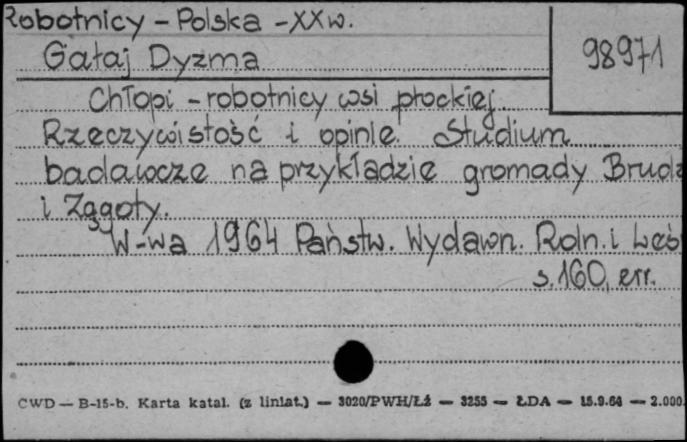 Robotnicy - Polska - XX w.
98971
Gałaj Dyzma
Chłopi - robotnicy wsi płockiej.
Rzeczywistość i opinie. Studium
badawcze na przykładzie gromady Brudz
i Zągoty.
W-wa 1964 Państw. Wydawn. Roln. i Leś
s. 160, err.
CWD — B-15-b. Karta katal. (z liniat.) — 3020/PWH/Łż — 3255 — ŁDA — 15.9.64 — 2.000.